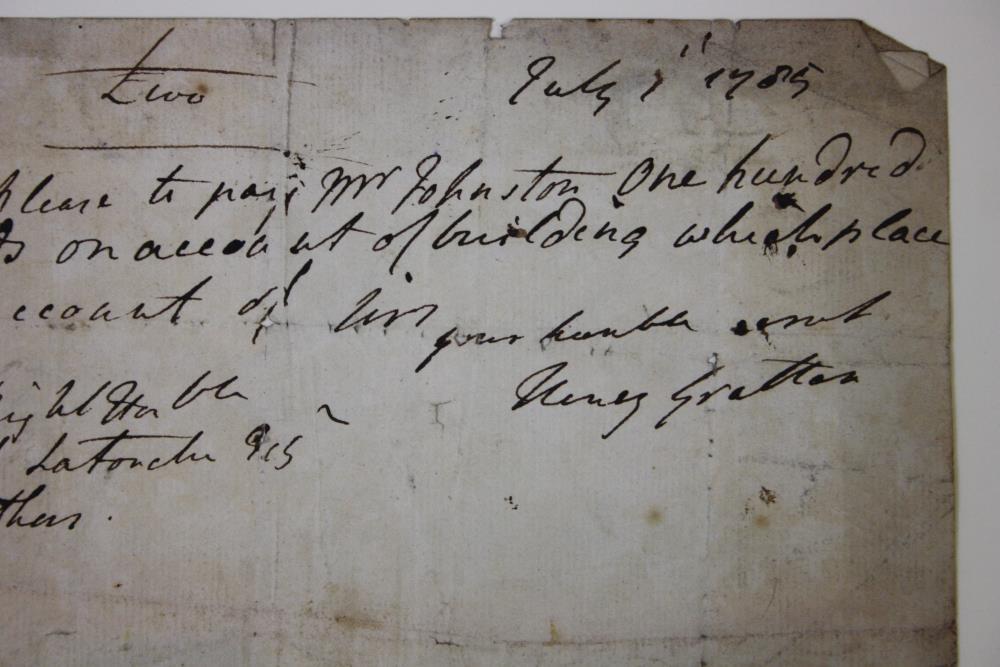 £100 July 1st 1785
Please to pay Mr Johnston One hundred
on account of building which place
ccount of Sirs
your humble servt
ight Honble Henry Grattan
Latouche
thers.